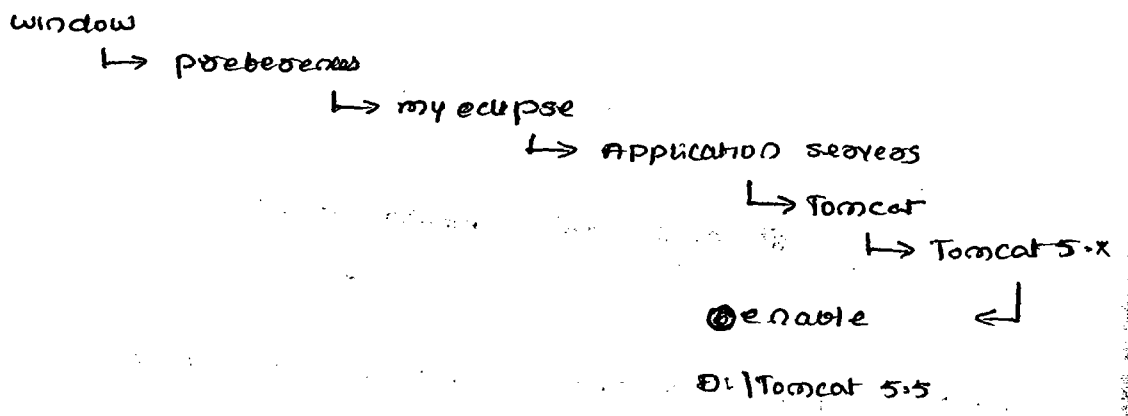 window
↳ preferences
↳ my eclipse
↳ Application servers
↳ Tomcat
↳ Tomcat 5.x
enable
D:\Tomcat 5.5